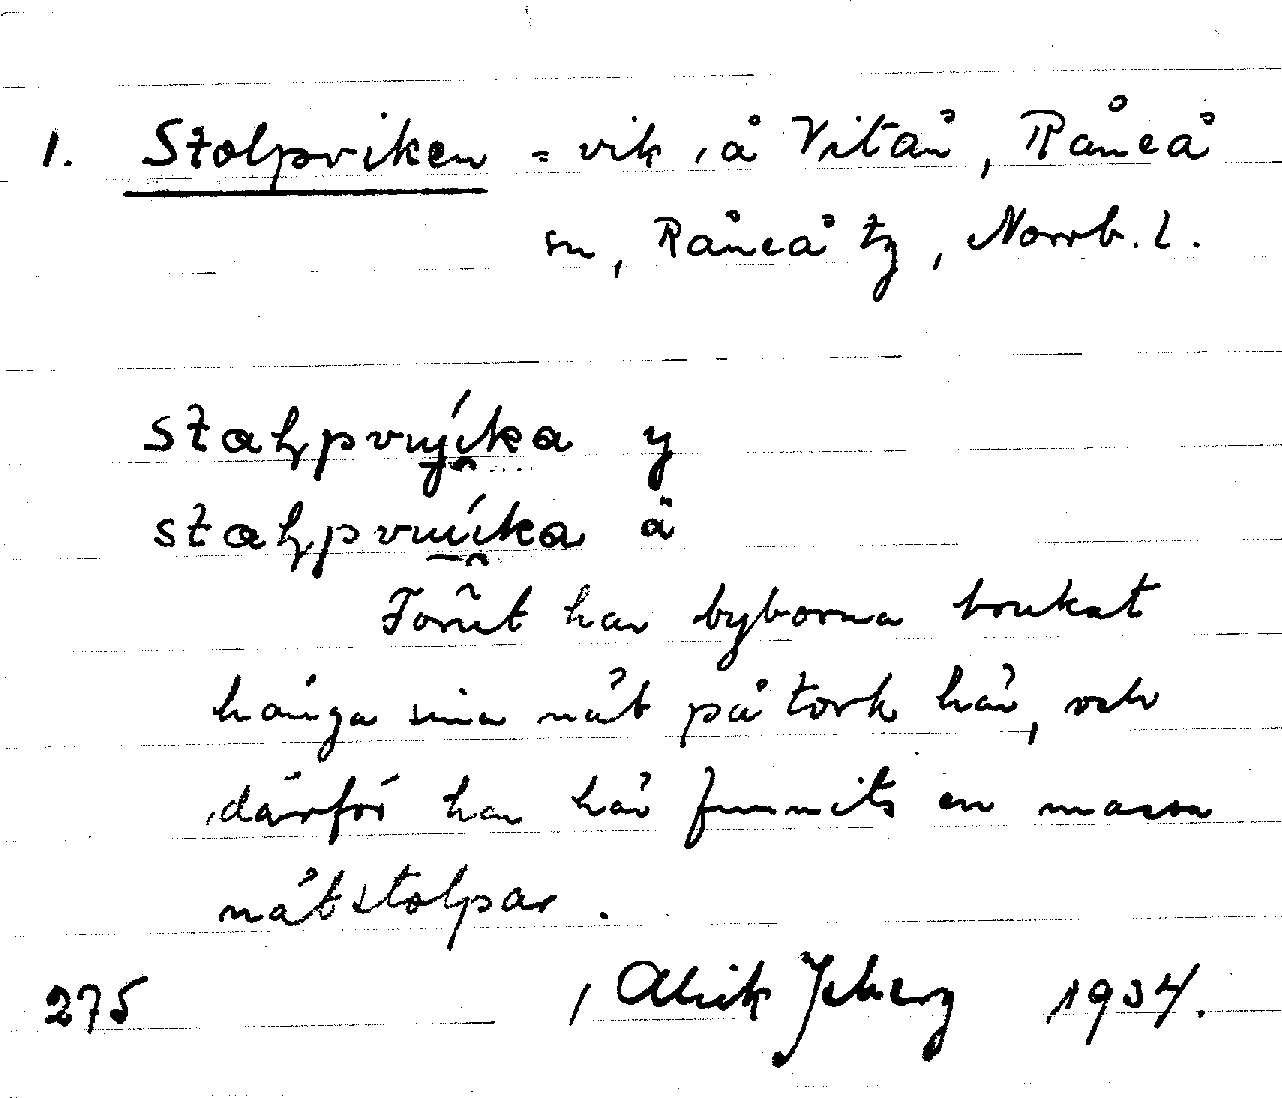 1. Stolpviken = vik i å Vitån, Råneå
sn, Råneå tg, Norrb. l.
y
ä
Förut har byborna brukat
hänga sina nät på tork här, och
därför har här funnits en massa
nätstolpar.
275 Alrik 1934.